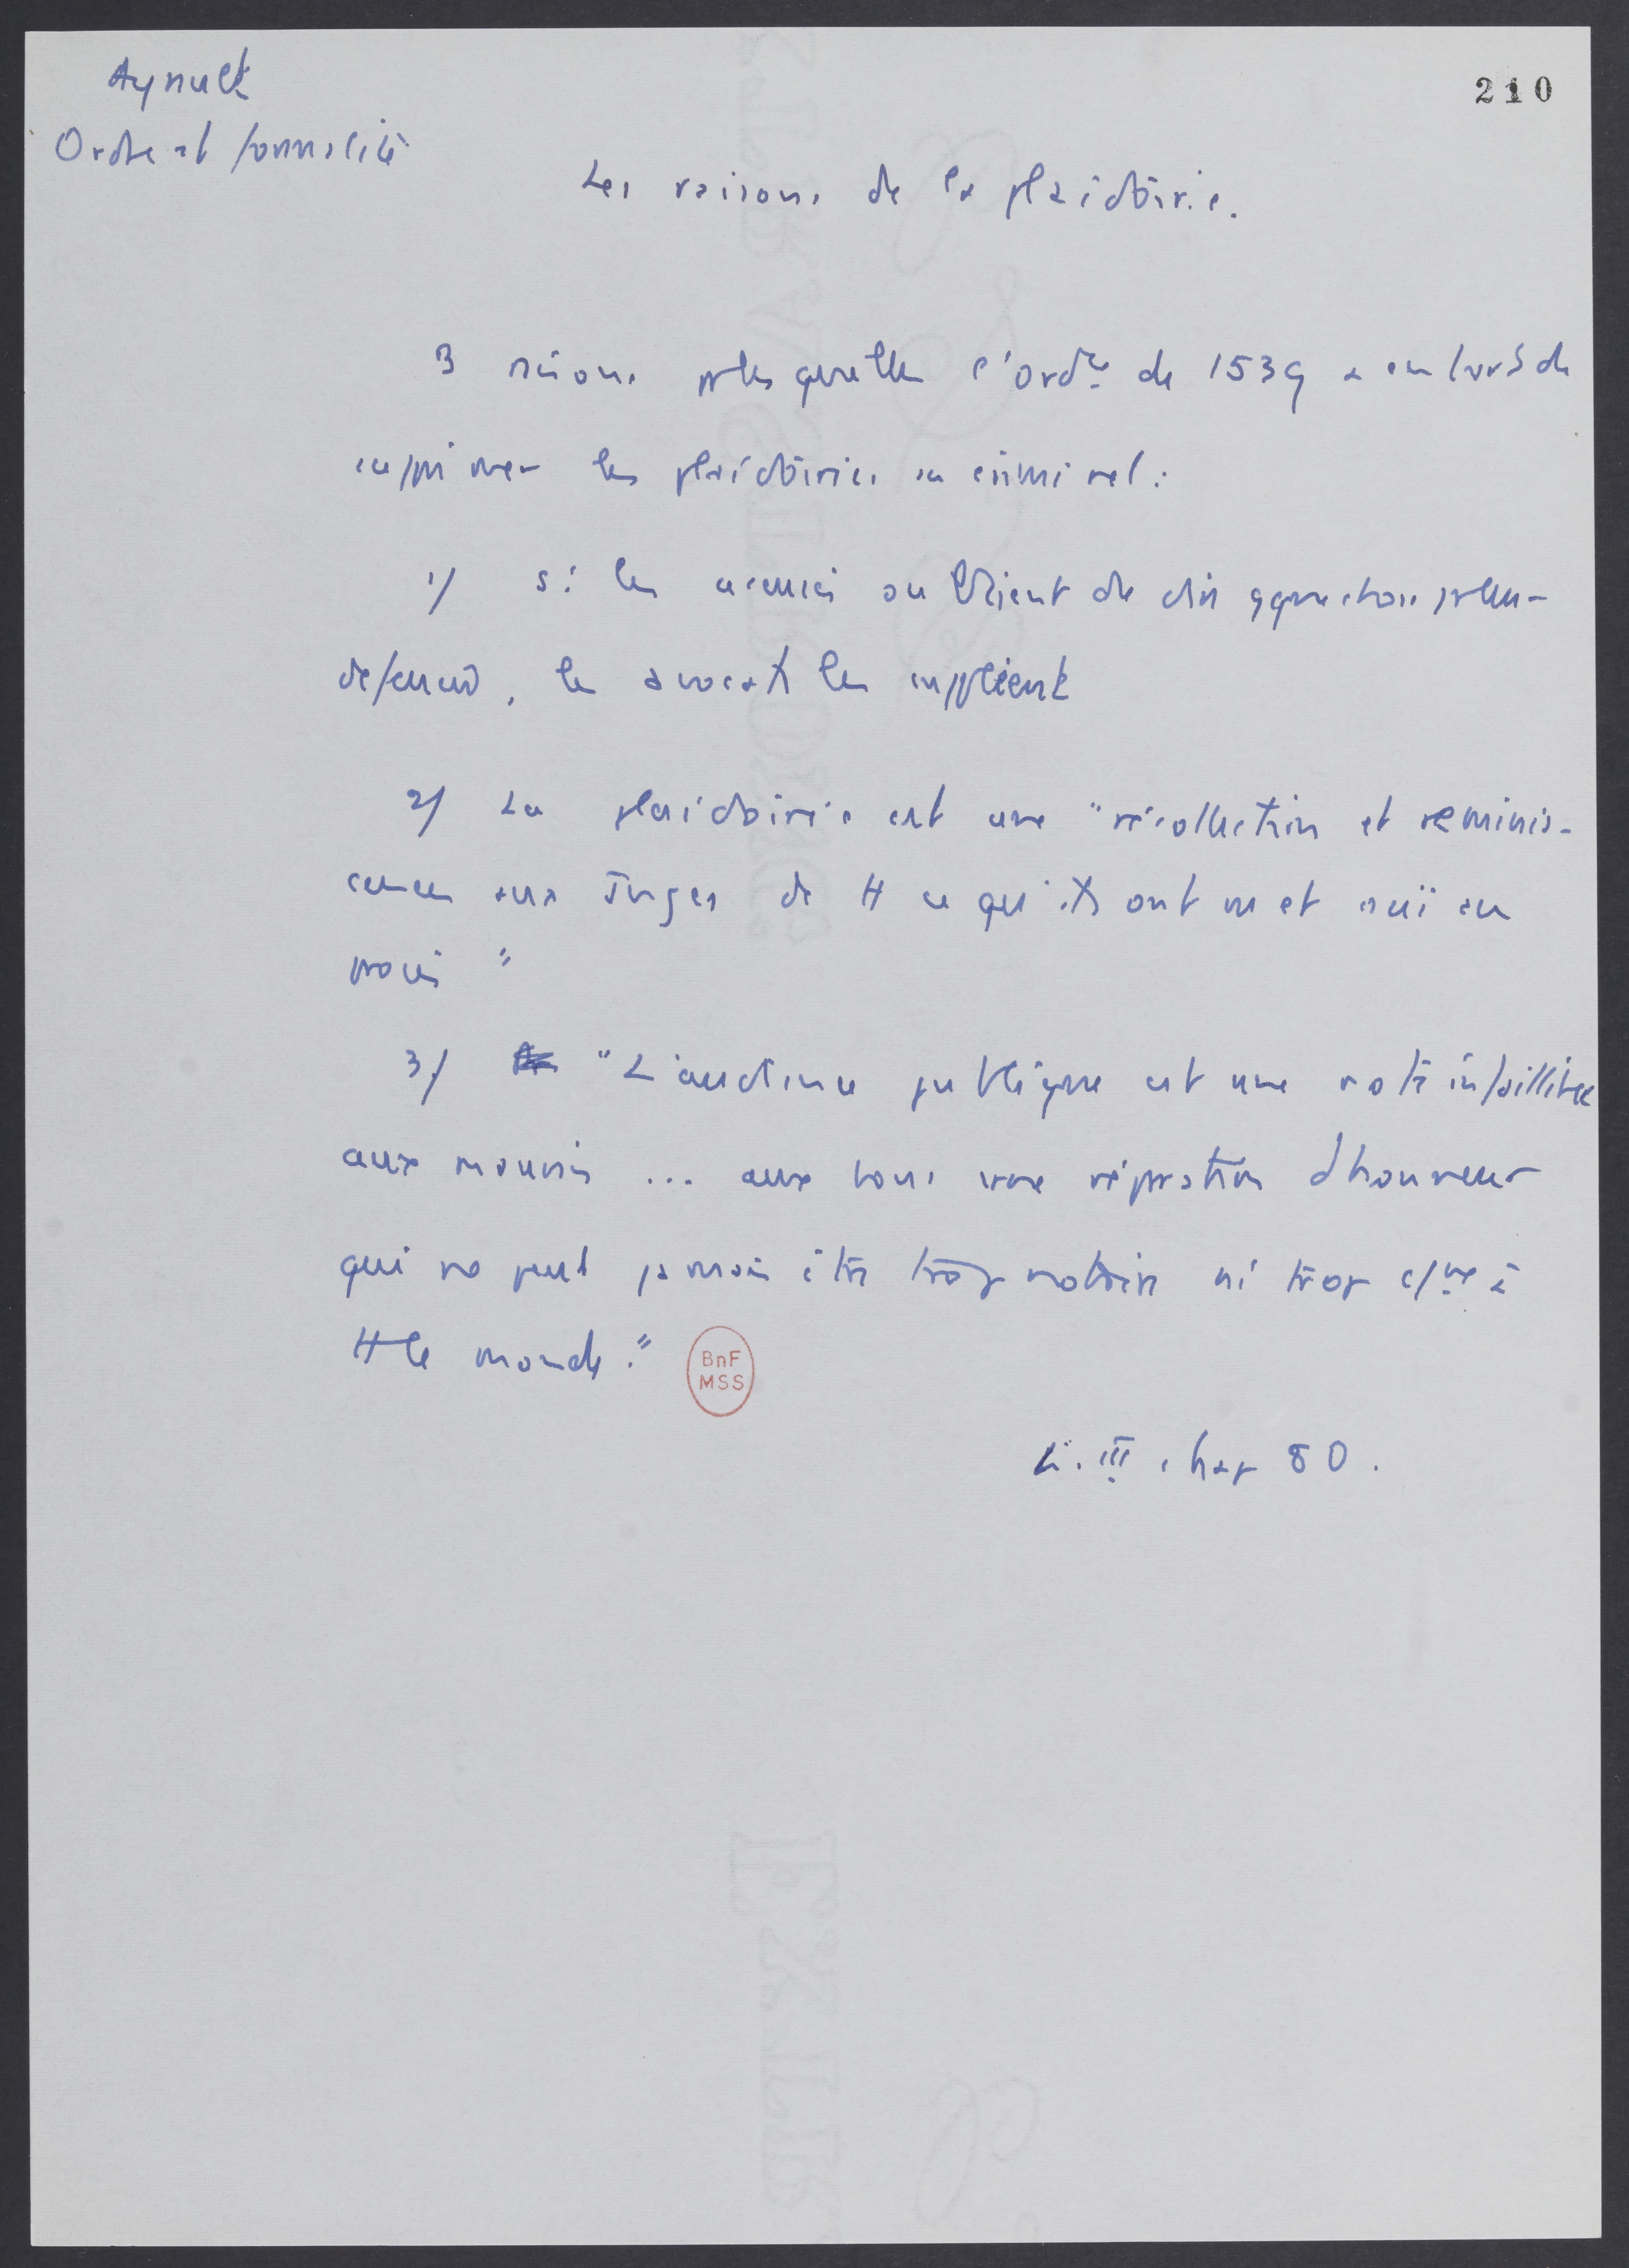 Ayrault
Ordre et formalité
210
Les raisons de la plaidoirie.
3 raisons pr lesquelles l'ordce de 1539 a eu tort de
supprimer les plaidoiries au criminel :
1/ Si les accusés oublient de dire qque chose pr leur
défense, les avocats les suppléent
2/ La plaidoirie est une "récollection et réminis-
cence aux Juges de tt ce qu'ils ont vu et ouï au
procès"
3/ "L'audience publique est une note infaillible
aux mauvais ... aux bons une réparation d'honneur
qui ne peut jamais être trop notoire ni trop cue à
tt le monde."
BnF
MSS
L. III chap 80.